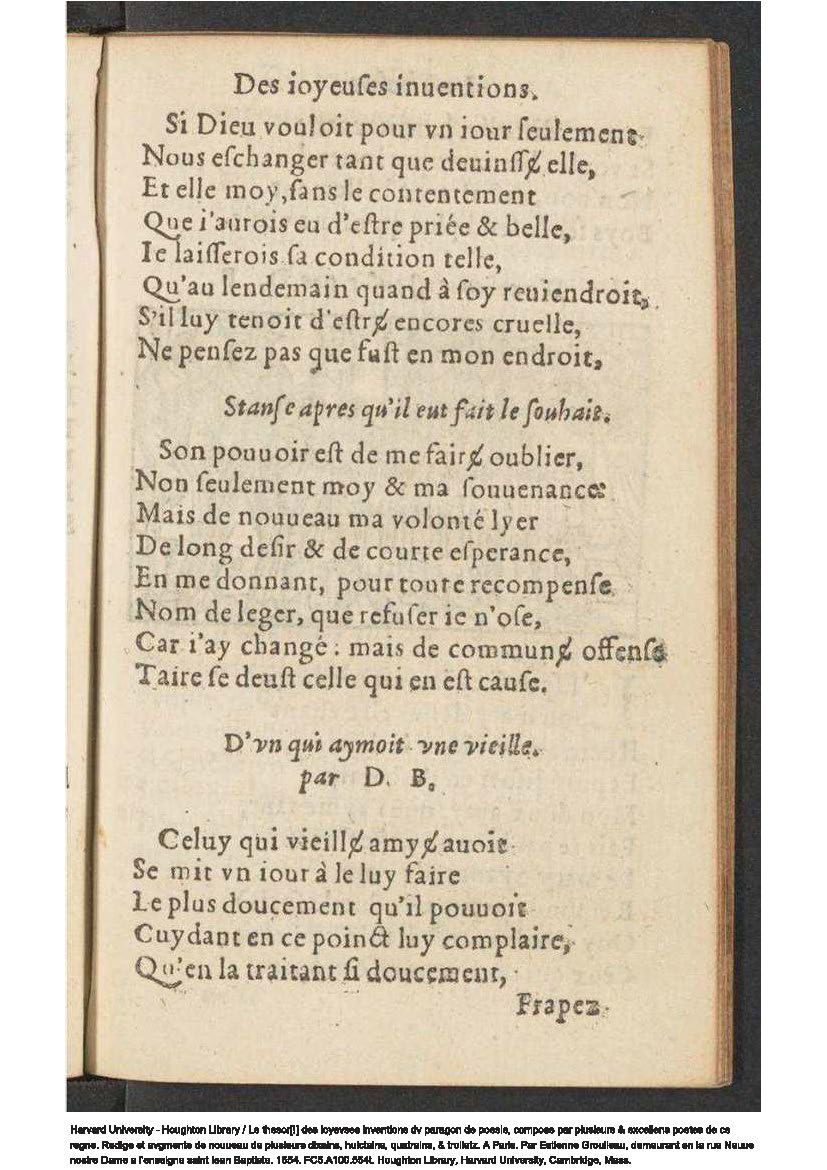 Des ioyeuſes inuentions.
Si Dieu vouloit pour vn iour ſeulement
Nous eſchanger tant que deuinſſɇ elle,
Et elle moy, ſans le contentement
Que i'aurois eu d'eſtre priée & belle,
Ie laiſſerois ſa condition telle,
Qu'au lendemain quand à ſoy reuiendroit,
S'il luy tenoit d'eſtrɇ encores cruelle,
Ne penſez pas que fuſt en mon endroit,
Stanſe apres qu'il eut fait le ſouhait.
Son pouuoir eſt de me fairɇ oublier,
Non ſeulement moy & ma ſouuenance:
Mais de nouueau ma volonté lyer
De long deſir & de courte eſperance,
En me donnant, pour toute recompenſe
Nom de leger, que refuſer ie n'oſe,
Car i'ay changé : mais de communɇ offenſe
Taire ſe deuſt celle qui en eſt cauſe.
D'vn qui aymoit vne vieille.
par D. B.
Celuy qui vieillɇ amyɇ auoit
Se mit vn iour à le luy faire
Le plus doucement qu'il pouuoit
Cuydant en ce poinct luy complaire,
Qu'en la traitant ſi doucement,
Frapez
Harvard University - Houghton Library / Le thesor[!] des ioyevses inventions dv paragon de poesie, compose par plusieurs & excellens poetes de ce
regne. Redige et avgmente de nouueau de plusieurs dixains, huictains, quatrains, & trolletz. A Paris. Par Estienne Groulleau, demeurant en la rue Neuue
nostre Dame a l'enseigne saint Iean Baptiste. 1554. FC5.A100.554t. Houghton Library, Harvard University, Cambridge, Mass.